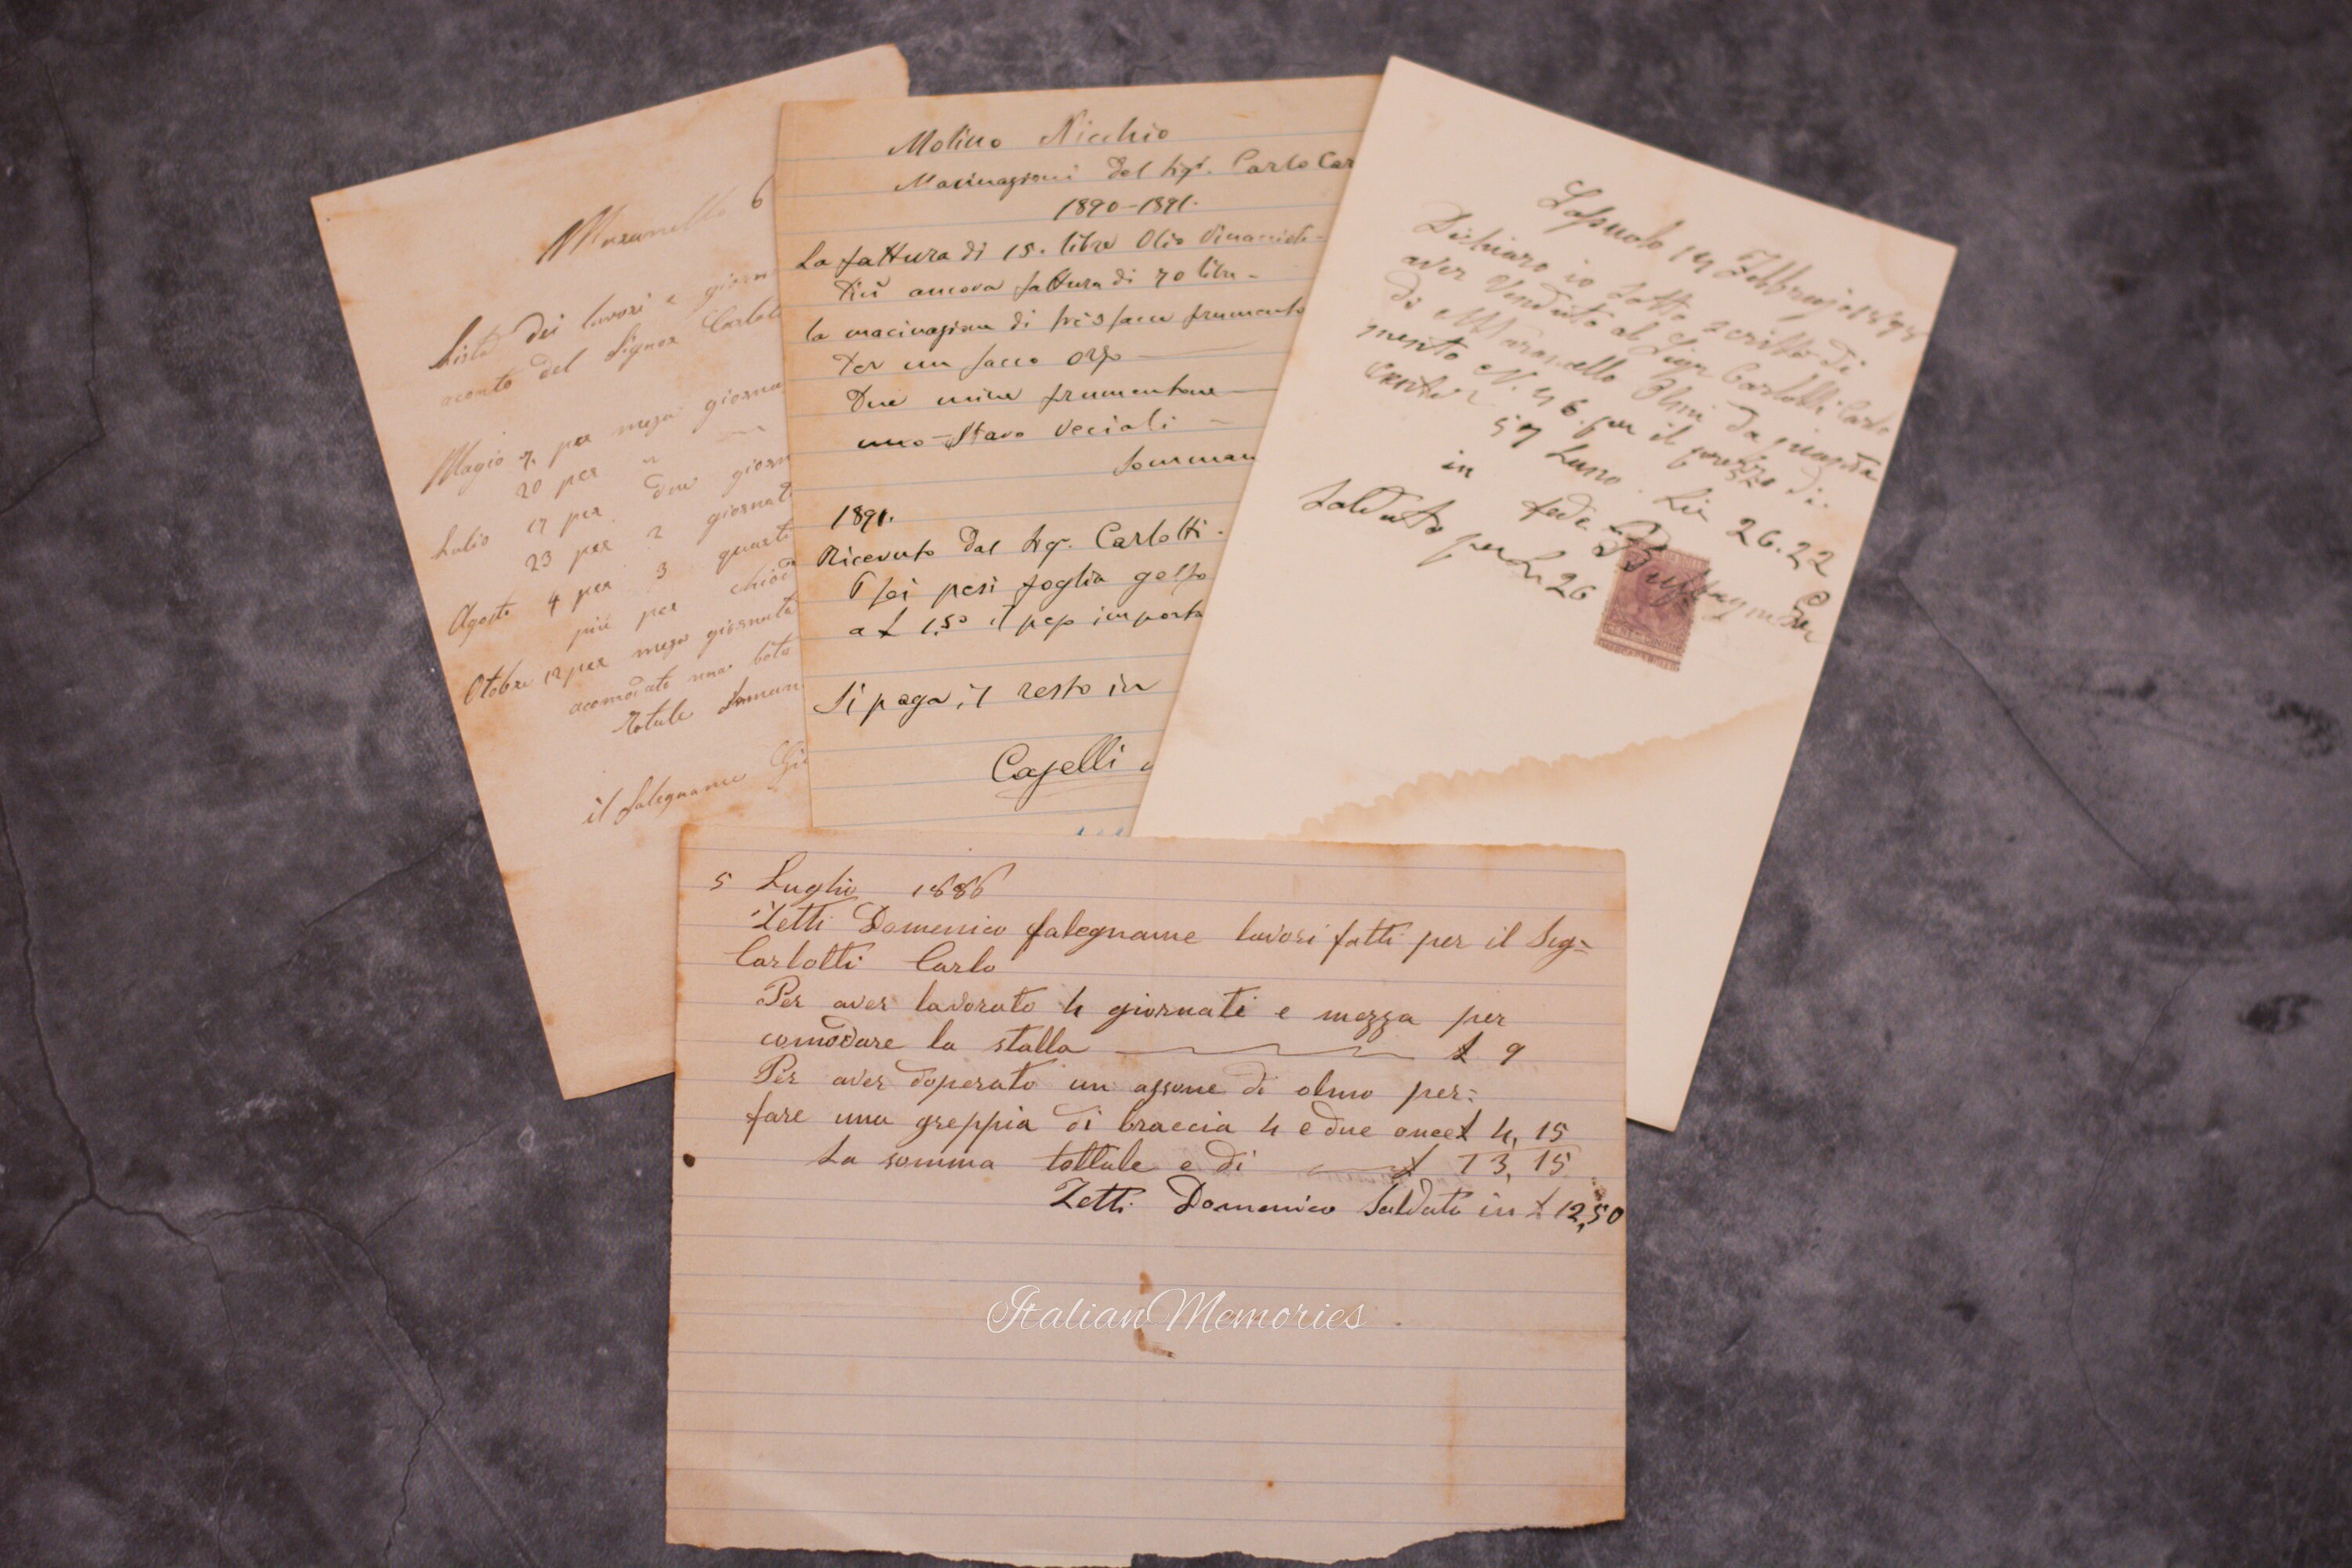 Maranello 6
Lista dei lavori e giorn
aconto del Signor Carlot
Magio 7, per meza giorna
20 per "
Lulio 17 per due giorn
23 per 2 giornat
Agosto 4 per 3 quarti
più per chiod
Otobre 12 per meza giornata
acomodate una bote
Totale Somm
il falegname Gi
Molino Nicchio
Macinazioni del Sigr. Carlo Car
1890-1891.
La fattura di 15. libre Olio Vinaccioli
Più ancora fattura di 70 libre
la macinazione di tre sacca frumento
Per un sacco orzo
Due mine frumentone
uno Stavo Veciati
Somman
1891.
Ricevuto dal Sigr. Carlotti.
sei pesi foglia gelso
a £ 1.50 il peso importa
Si paga il resto in
Caselli
14 Febbrajo
Dichiaro io sotto scritto di
aver Venduto al Sigr Carlotti Carlo
di Maranello Olmi da
N. 46. per il prezzo di.
57 Luno. Lir 26.22
in fede
Saldato per L 26
5 Luglio 1886
Zetti Domenico falegname lavori fatti per il Sig=
Carlotti Carlo
Per aver lavorato 4 giornati e mezza per
comodare la stalla £ 9
Per aver doperato un assone di olmo per=
fare una greppia di braccia 4 e due once £ 4,15
La somma tottale e di £ 13,15
Zetti Domenico Saldato in £ 12,50
ItalianMemories